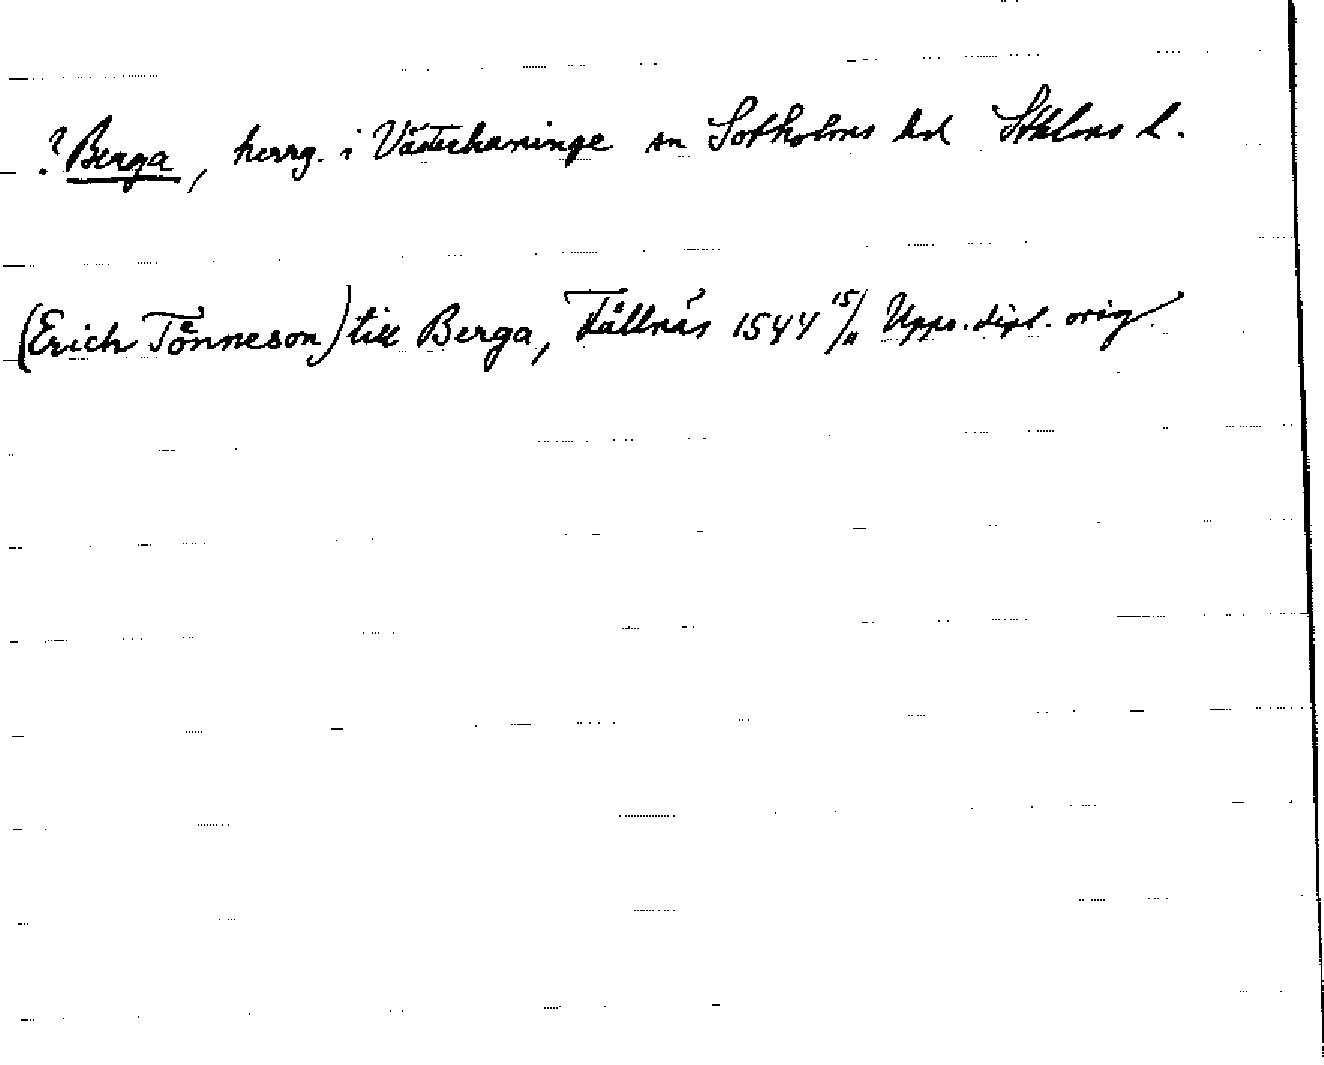 ? Berga, herrg. i Västerhaninge sn Sotholms hd Sthlms l.
(Erich Tönneson) till Berga, Fållnäs 1544 15/11 Upps. dipl. orig.